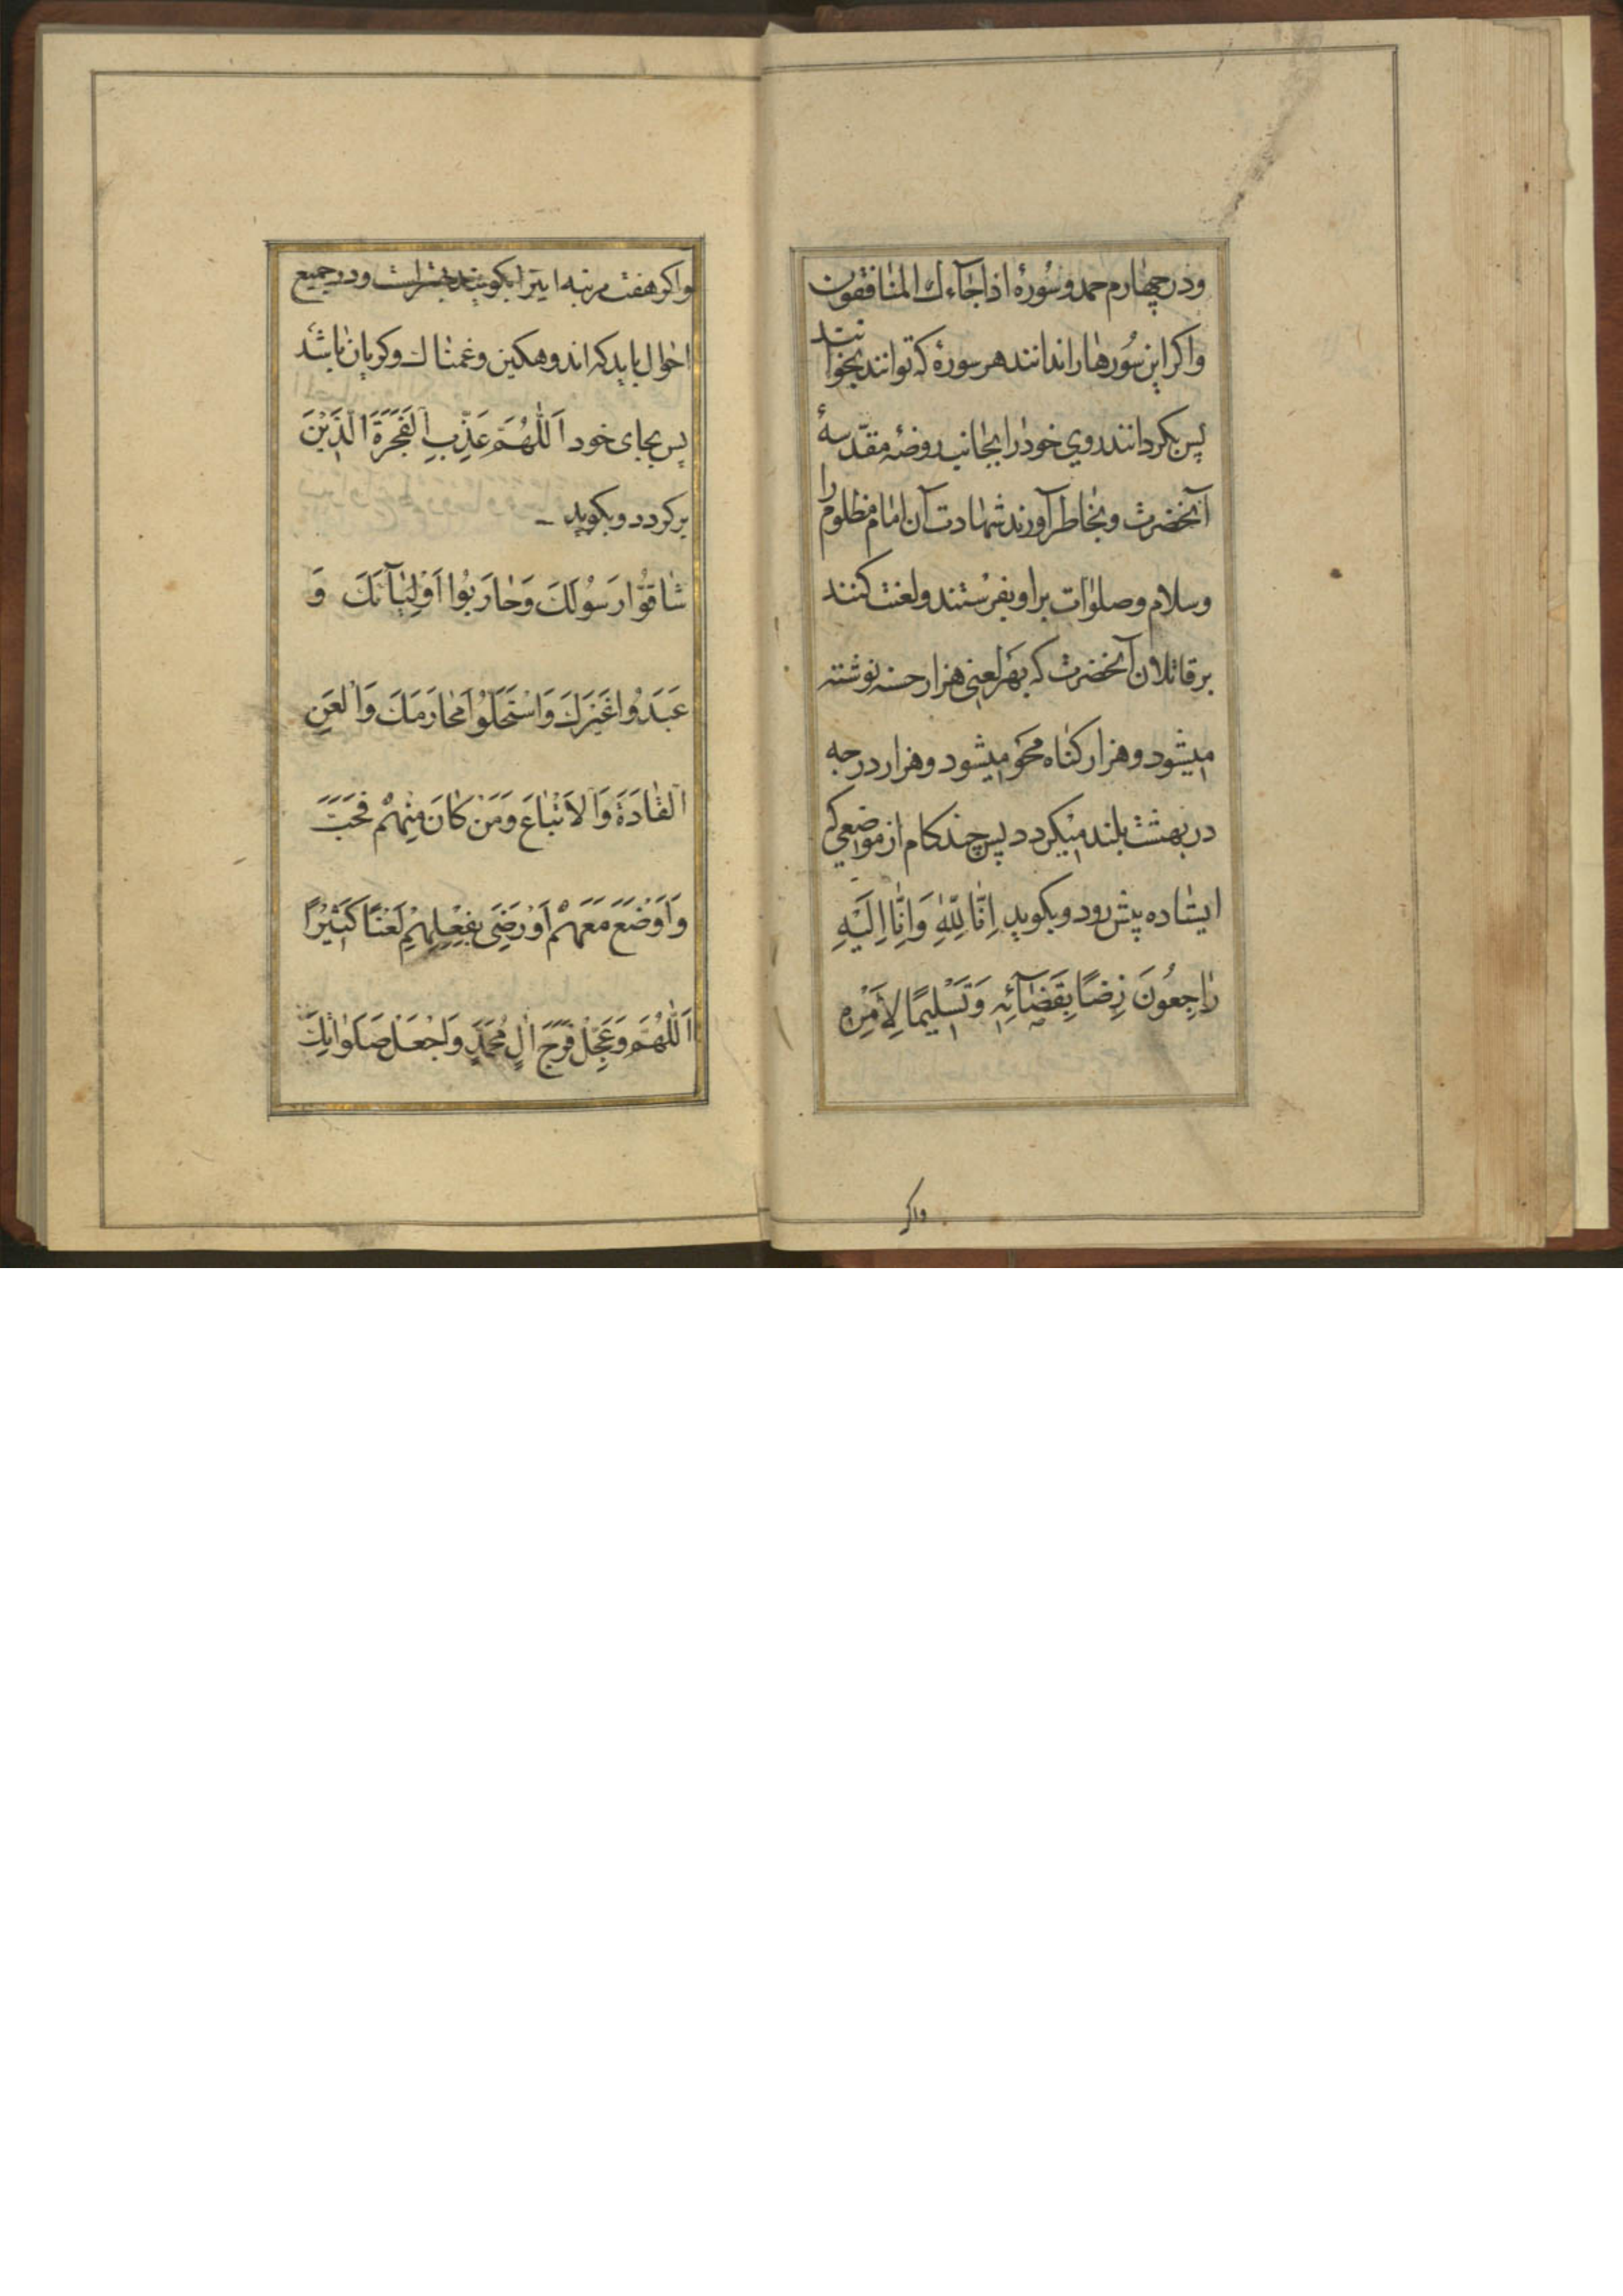 ودر چهارم حمد و سُورهٔ اذا جآءك المنافقون
واكر این سُورهٰا را ندانند هر سورهٔ كه توانند بخوانند
پس بكردانند روی خود را بجانب روضهٔ مقدّسهٔ
آنحضرت و بخاطر آورند شهادت آن امام مظلوم را
وسلام و صلوات بر او بفرستند و لعنت كنند
بر قاتلان آنحضرت كه بهر لعنی هزار حسنه نوشته
میشود و هزار كناه محو میشود و هزار درجه
در بهشت بلند میكردد پس چند كام از موضعی كه
ایستاده پیش رود و بكوید اِنّا لِلّٰهِ وَاِنّٰا اِلَیْهِ
رٰاجِعُونَ رِضًا بِقَضٰآئِهِ وَتَسْلیمًا لِاَمْرِهِ
واكر
واكر هفت مرتبه اینرا بكویند بهتر است و در جمیع
احوال باید كه اندوهكین و غمناك و كریان باشد
پس بجای خود اَللّٰهُمَّ عَذِّبِ الْفَجَرَةَ الَّذینَ
بركردد و بكوید
شٰاقُّوا رَسُولَكَ وَحٰارَبُوا اَوْلِیٰآئَكَ وَ
عَبَدُوا غَیْرَكَ وَاسْتَحَلُّوا مَحٰارِمَكَ وَالْعَنِ
الْقٰادَةَ وَالْاَتْبٰاعَ وَمَنْ كٰانَ مِنْهُمْ فَخَبَّ
وَاَوْضَعَ مَعَهُمْ اَوْ رَضِیَ بِفِعْلِهِمْ لَعْنًا كَثیرًا
اَللّٰهُمَّ وَعَجِّلْ فَرَجَ اٰلِ مُحَمَّدٍ وَاجْعَلْ صَلَوٰاتِكَ